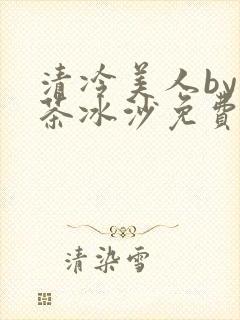 清冷美人by
茶冰沙免費
清染雪